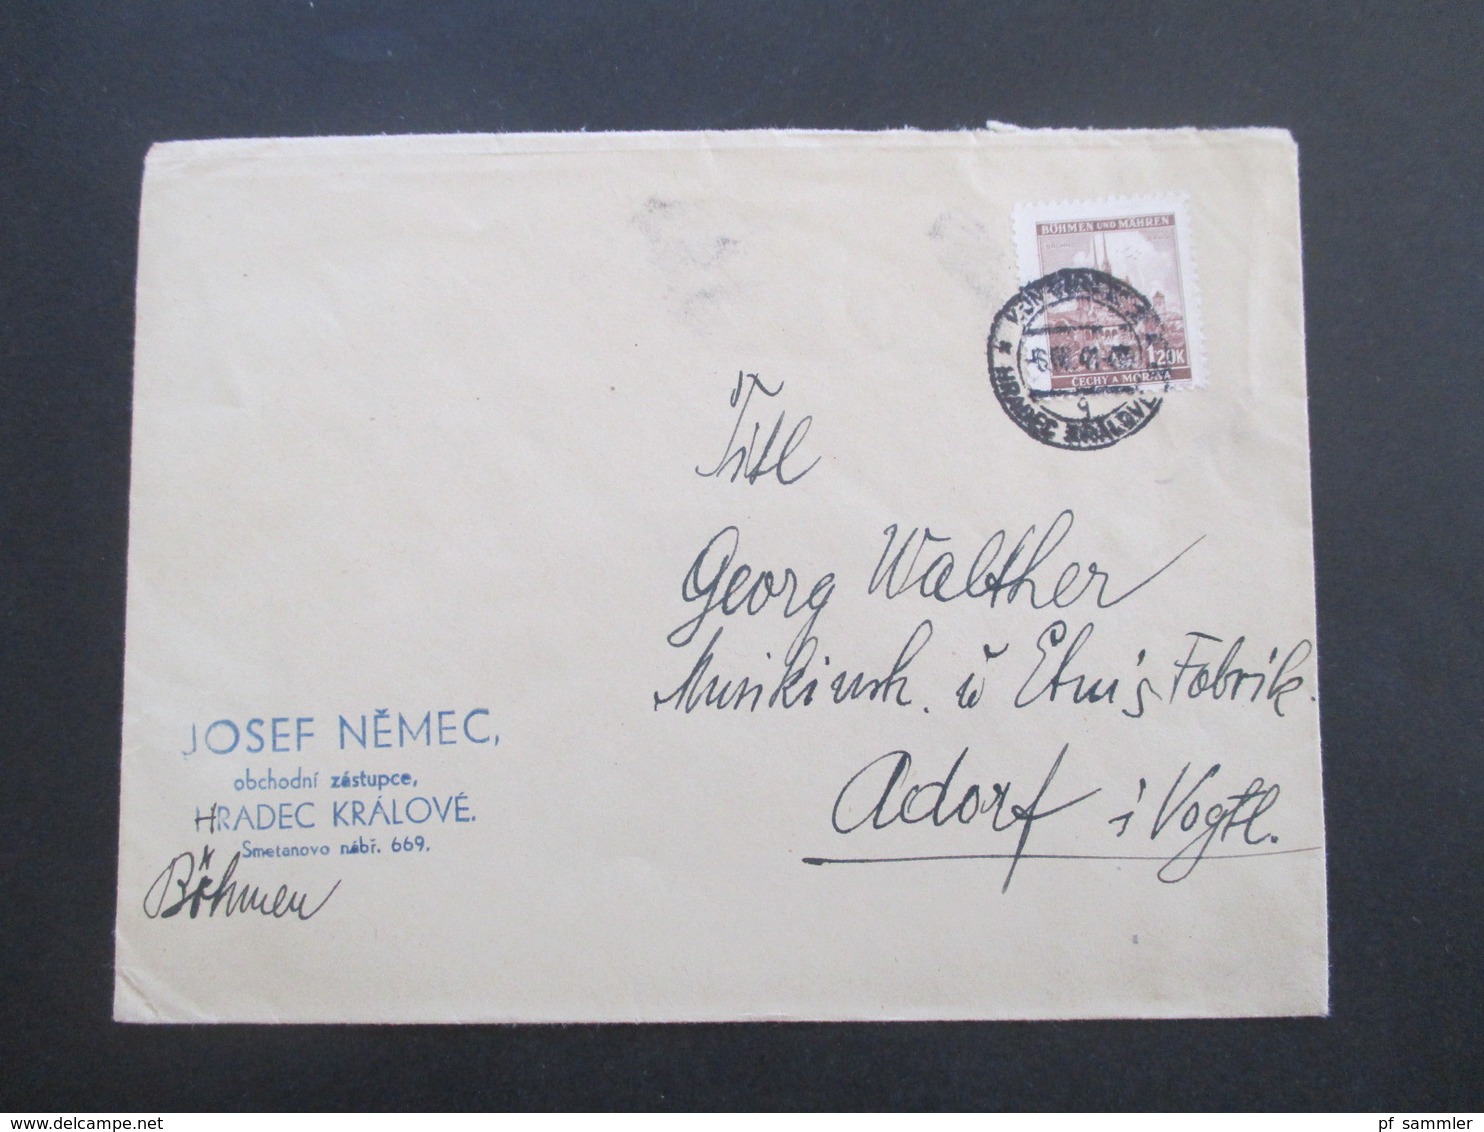 BÖHMEN UND MÄHREN
1.20K
ČECHY A MORAVA
HRADEC KRÁLOVÉ
g
Titl
Georg Walther
Musikinsh. u Etuis Fabrik.
Adorf i Vogtl.
JOSEF NĚMEC,
obchodní zástupce,
HRADEC KRÁLOVÉ.
Smetanovo nábř. 669.
Böhmen
pf_sammler